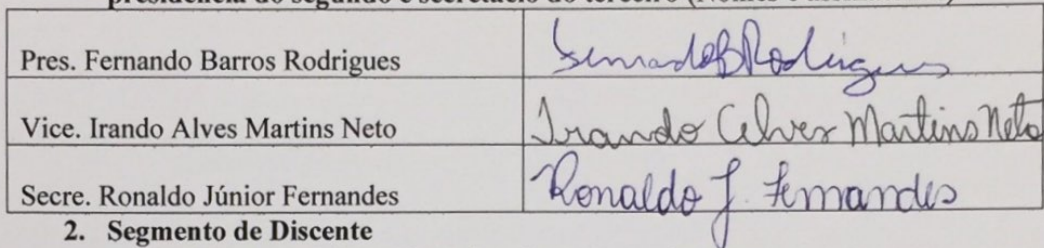 presidência do segundo e secretácio do terceiro
Pres. Fernando Barros Rodrigues FernandoBRodrigues
Vice. Irando Alves Martins Neto Irando Alves Martins Neto
Secre. Ronaldo Júnior Fernandes Ronaldo J. Fernandes
2. Segmento de Discente